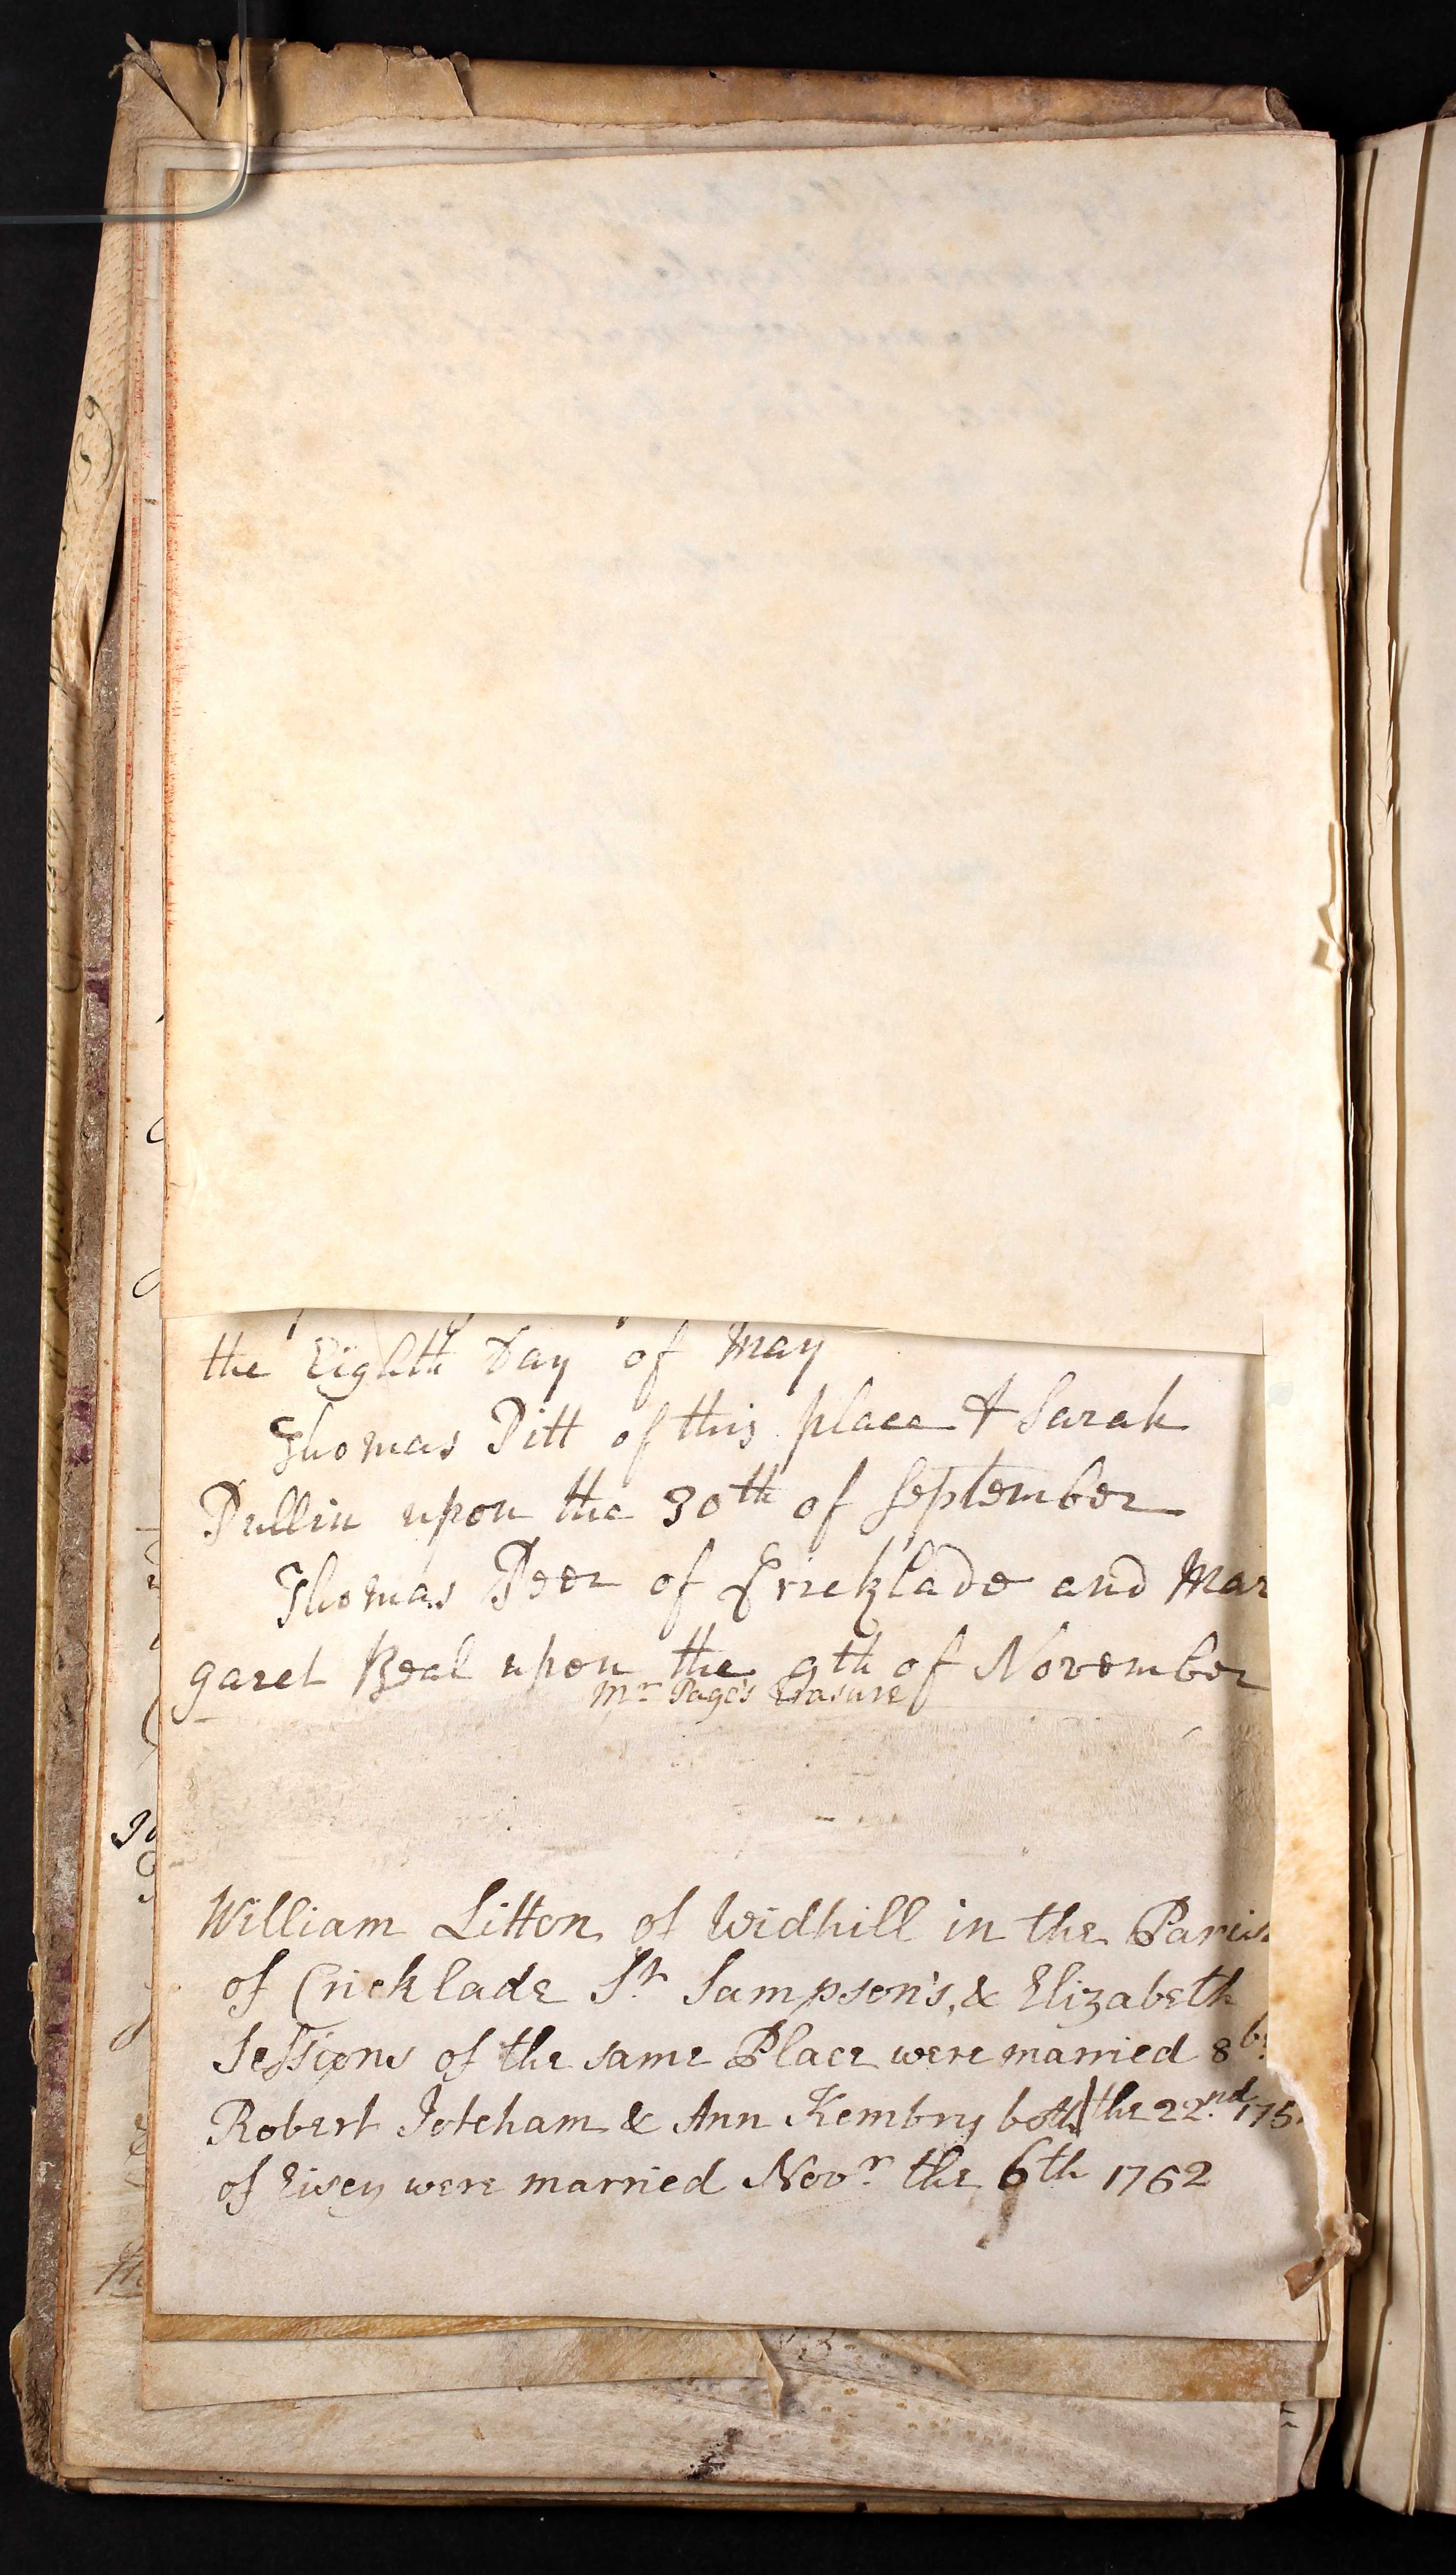 the Eighth Day of May
Thomas Pitt of this place & Sarah
Pullin upon the 30th of September
Thomas Peer of Cricklade and Mar
garet Beal upon the 9th of November
Mr Page's Erasure
William Litton of Widhill in the Parish
of Cricklade St. Sampson's, & Elizabeth
Sessions of the same Place were married 8br
Robert Joteham & Ann Kembry both the 22nd. 175
of Eisey were married Novr. the 6th 1762